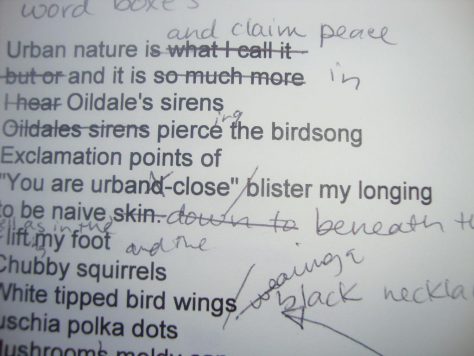 word boxes
and claim peace
Urban nature is what I call it
but or and it is so much more in
I hear Oildale's sirens
Oildales sirens pierce ing the birdsong
Exclamation points of
"You are urban-close" blister my longing
to be naive skin. down to beneath
as in the
lift my foot and the
Chubby squirrels wearing a
White tipped bird wings black
polka dots